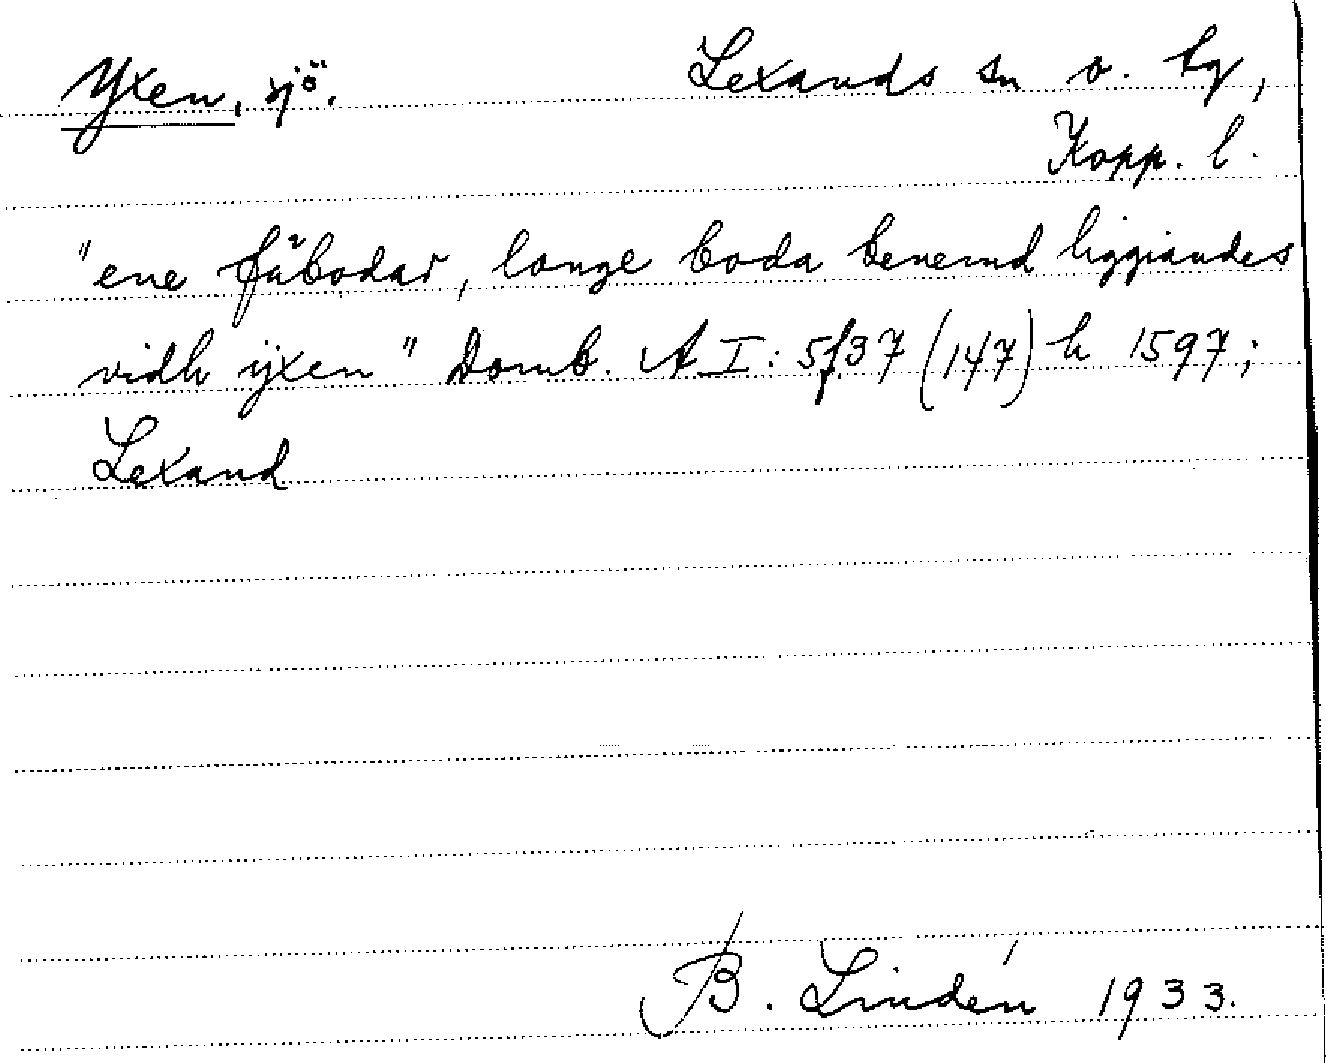 Yxen, sjö. Lexands sn o. tg,
Kopp. l.
"ene fäbodar, lange boda benemd liggiandes
vidh ÿxen" Domb. A I: 5 f 37 (147) h 1597;
Lexand
B. Lindén 1933.